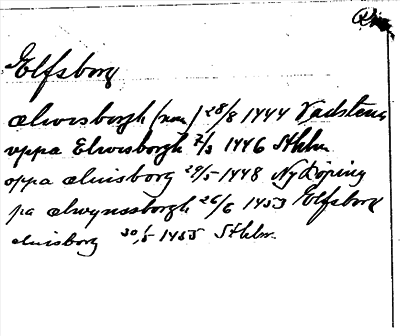 Elfsborg
elwisborgh (nm) 28/8 1444 Vadstena
vppa Elwisborgh 7/3 1446 Sthlm
oppa eluisborg 29/5 1448 Nyköping
pa elwynssborgh 26/6 1453 Elfsborg
eluisborg 30/5 1455 Sthlm.